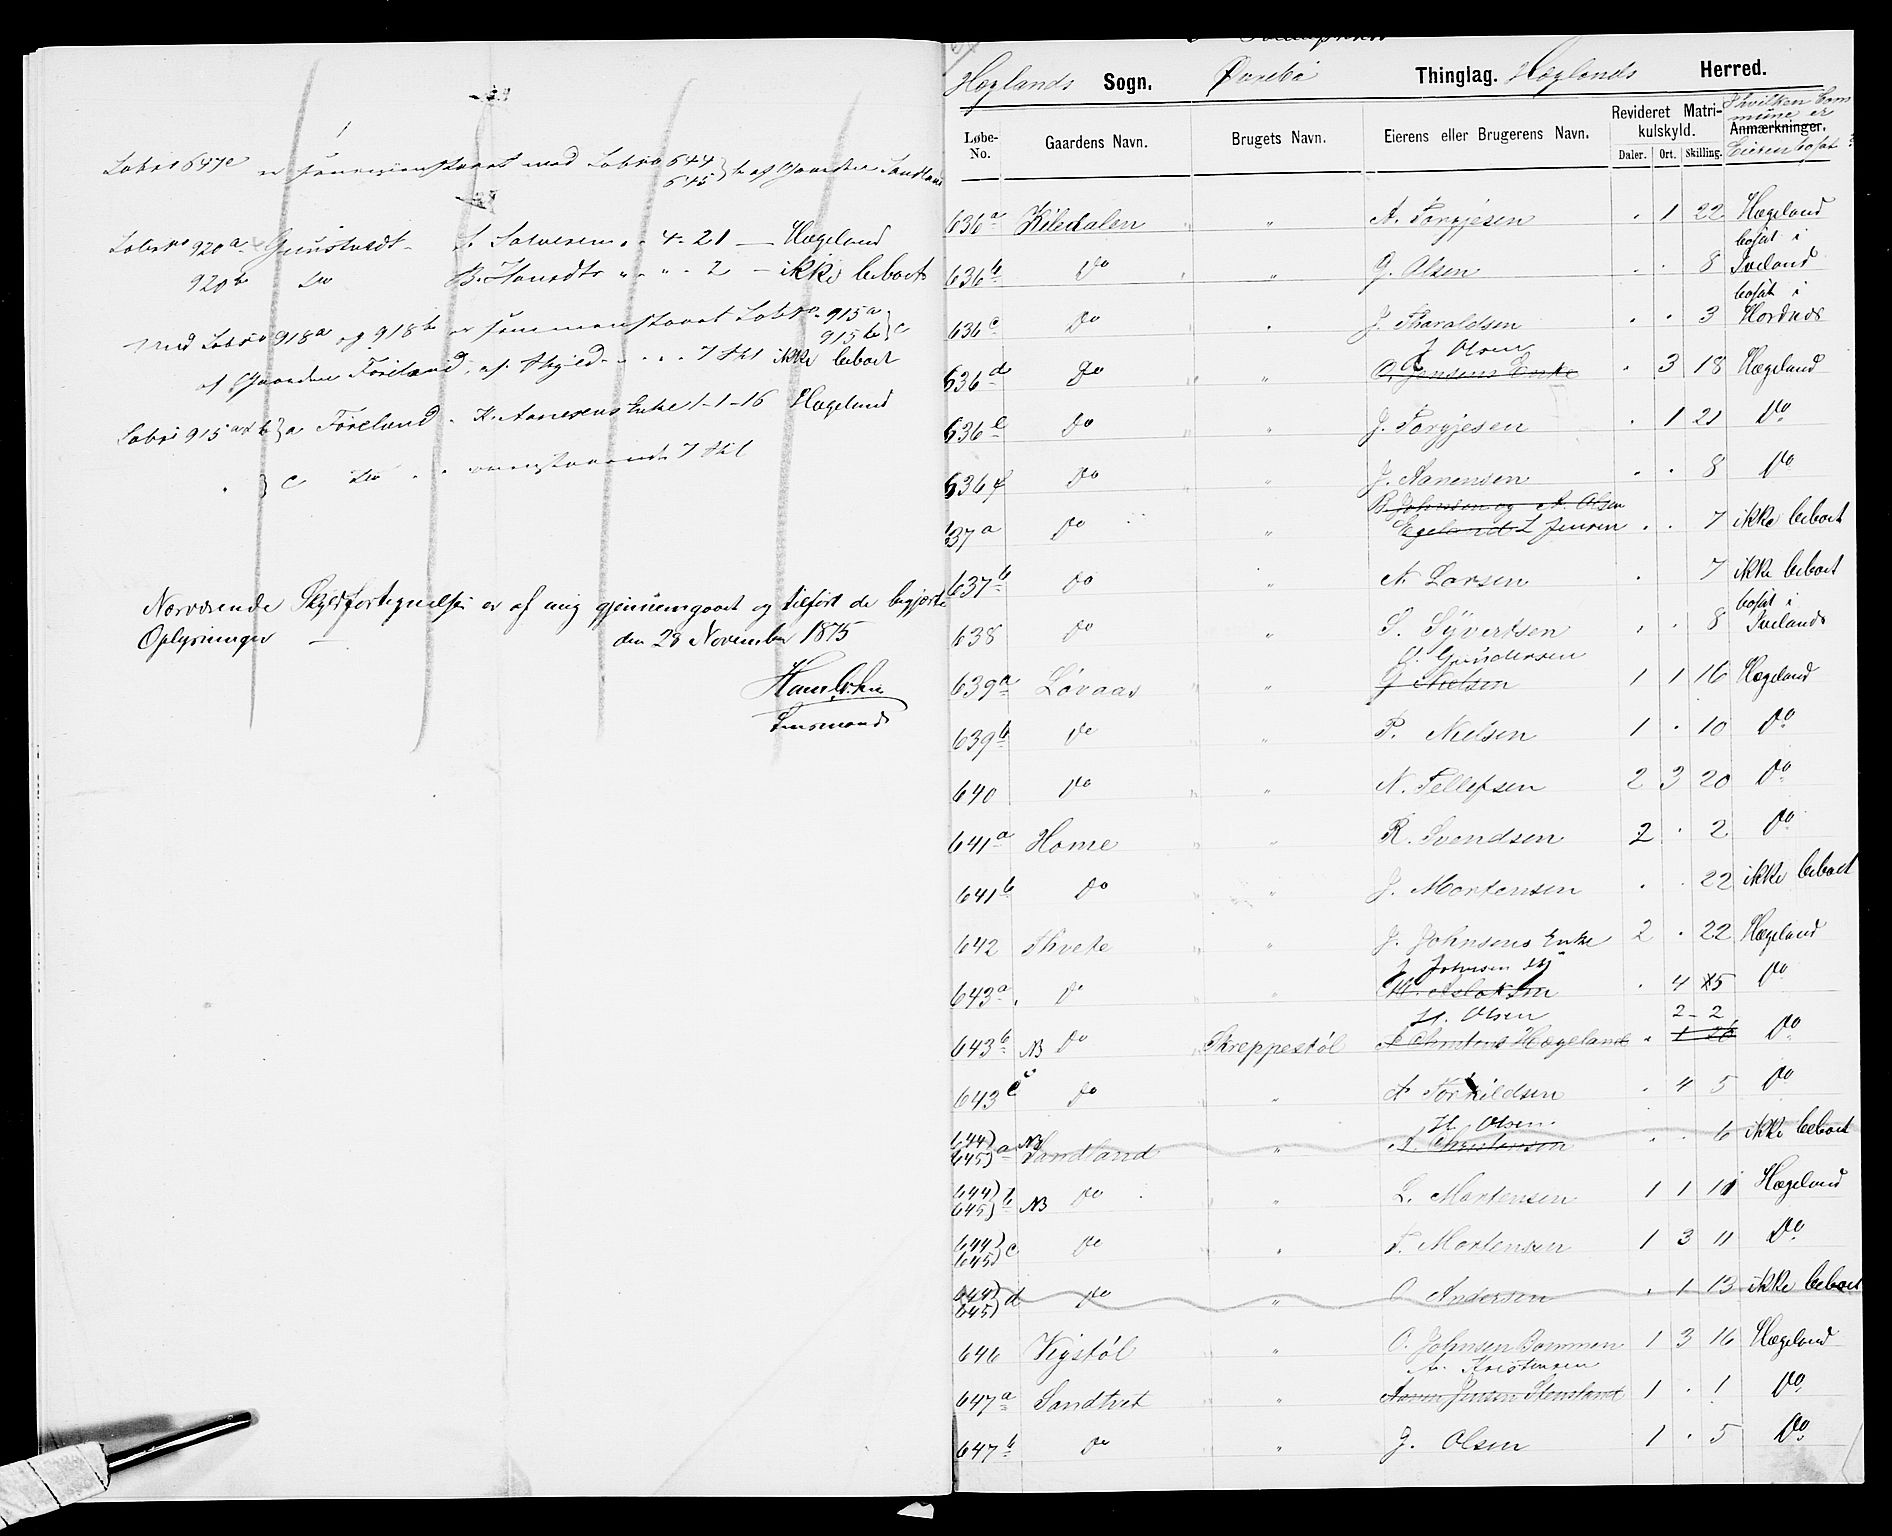 Løbeno 647c er sammenstaaet med Løbeno 644 645 } b af Gaarden Sandland
Løbeno 920a Grunstvedt S. Salvesen „ 4 - 21 — Hægeland
920b Do B. Homedts „ „ „ 2 — ikke beboet
Med Løbeno 918a og 918b er sammenstaaet Løbeno 915a 915b } c
af Gaarden Føreland, af Skyld - - - 7 skl ikke beboet
Løbeno 915a & b } a Føreland - K. Aanesens Enke 1 - 1 - 16 Hægeland
„ } c Do - - ovenstaaende 7 skl
Nærværende Skyldfortegnelse er af mig gjennemgaaet og tilført de begjærte
Oplysninger — den 28 November 1875
Lensmand
Hæglands Sogn. Øvrebø Thinglag. Hæglands Herred.
Løbe-No. Gaardens Navn. Brugets Navn. Eierens eller Brugerens Navn. Revideret Matrikulskyld. Daler. Ort. Skilling. Anmærkninger. Ihvilken Commune er Eieren bosat?
636a Kiledalen „ „ A. Torgjesen . 1 22 Hægeland
636b Do „ G. Olsen . . 8 bosat i Iveland
636c Do „ J. Tharaldsen . . 3 bosat i Hordnæs
J Olsen
636d Do „ O. Jensens Enke . 3 18 Hægeland
636e Do „ J. Torgjesen . 1 21 Do
636f Do „ J. Aanensen . . 8 Do
B. Johnsen og A. Olsen
637a Do „ Egeland L Jensen . . 7 ikke beboet
637b Do „ N Larsen . 7 ikke beboet
638 Do „ S. Syvertsen . . 8 bosat i Ivelands
O. Gundersen
639a Løvaas „ G Nielsen 1 1 16 Hægeland
639b Do „ P. Nielsen 1 . 10 Do
640 Do „ N. Tellefsen 2 3 20 Do
641a Home „ R. Svendsen 2 . 2 Do
641b Do „ J. Mortensen . . 22 ikke beboet
642 Kvete „ J. Johnsens Enke 2 . 22 Hægeland
J Johnsen
643a Do „ M. Aslaksen . 4 15 Do
H. Olsen 2 - 2
643b NB Do Skreppestøl A Christens Hægeland „ 1 20 Do
643c Do „ A Torkildsen . 4 5 Do
H. Olsen
644) 645) a NB Sandland „ A. Christensen . . 6 ikke beboet
644) 645) b NB Do „ L. Mortensen 1 1 11 Hægeland
644) 645) c Do „ T. Mortensen 1 3 11 Do
644) 645) d Do „ O Andersen . 1 13 ikke beboet
646 Vigstøl „ O. Johnsen Bommen 1 3 16 Hægeland
A. Kristensen
647a Sandtvet „ Aanen Jensen Stensland 1 . 1 Do
647b Do „ J. Olsen 1 . 5 Do